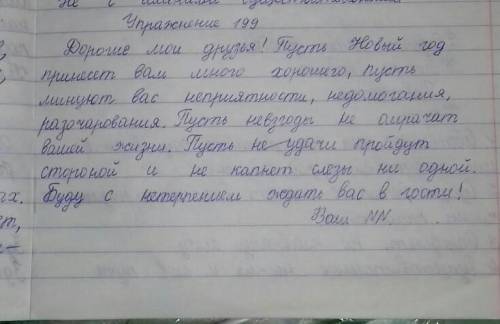 Не с именами существительными
Упражнение 199
Дорогие мои друзья! Пусть Новый год
принесет вам много хорошего, пусть
минуют вас неприятности, недомогания,
разочарования. Пусть невзгоды не омрачат
вашей жизни. Пусть не удачи пройдут
стороной и не капнет слезы ни одной.
Буду с нетерпением ждать вас в гости!
Ваш NN.